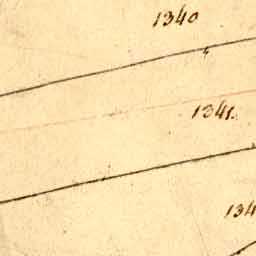 1340
1341.
134